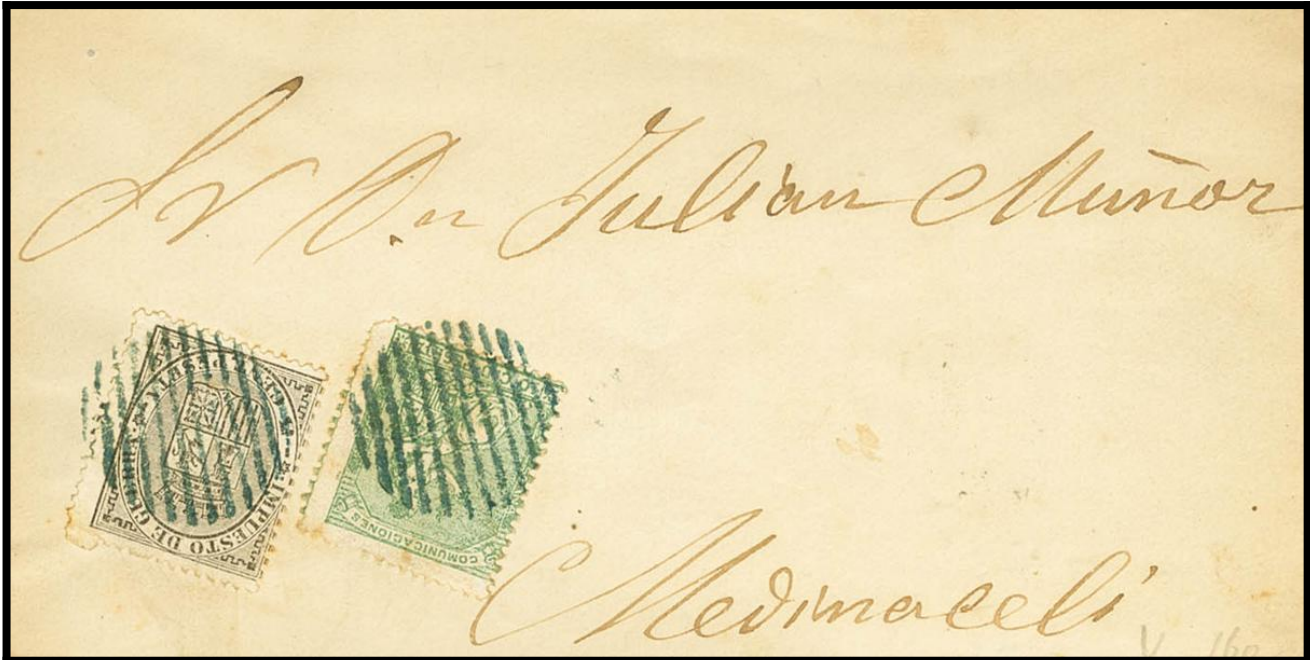 Sr Dn Julian Muñoz
IMPUESTO DE GUERRA
5 CENT PESETA
COMUNICACIONES
Medinaceli
V 160